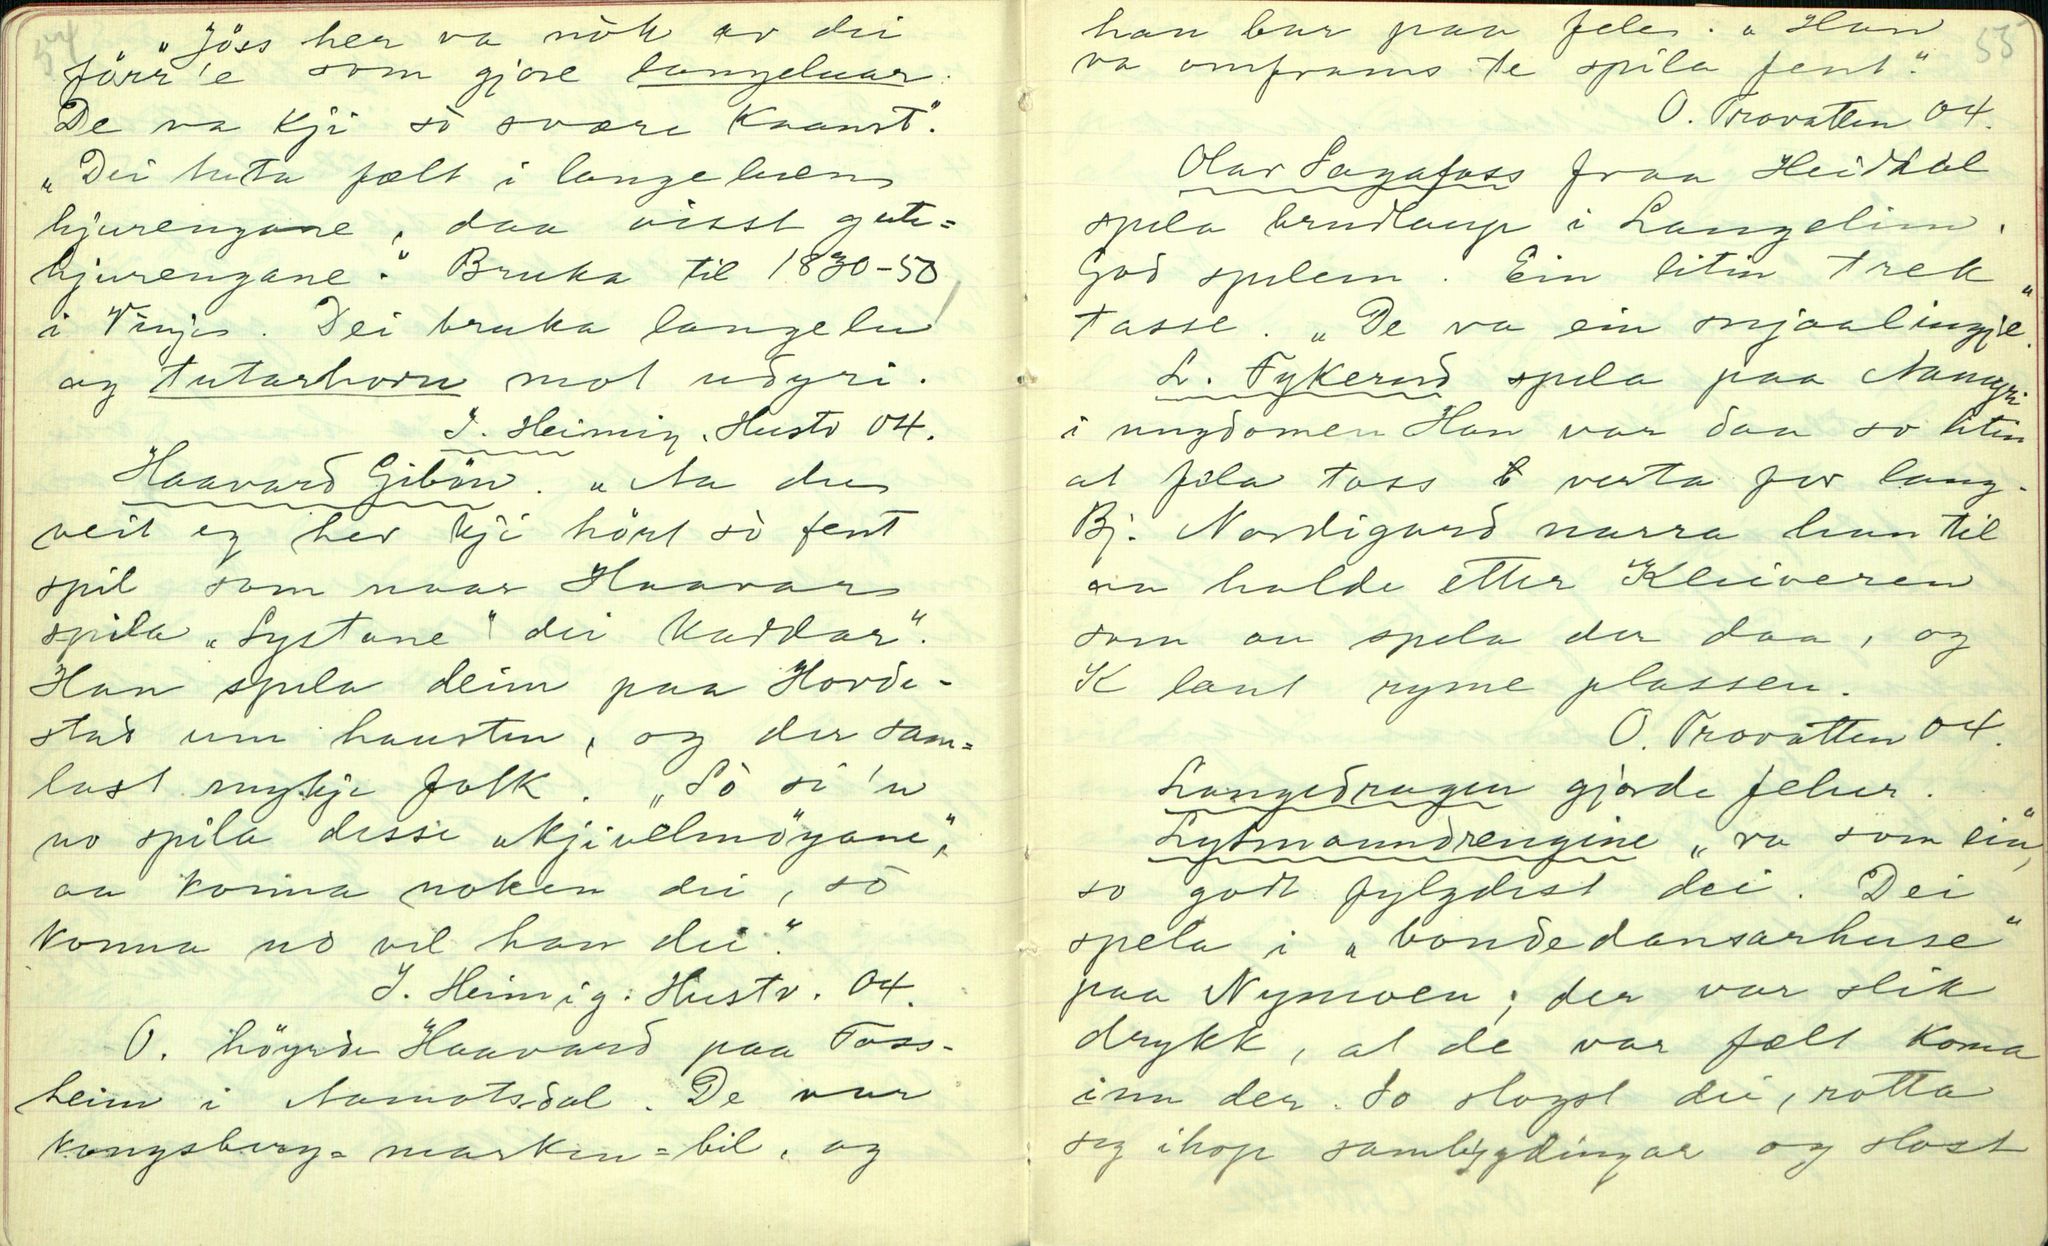 54
„Jöss her va nòk av dei
förr'e som gjore langeluar.
De va kji sò svære kaanst".
„Dei tuta fælt i langeluen
hjurengane, daa visst gute=
hjurengane." Bruka til 1830-50
i Vinje. Dei bruka langelu
og tutarhorn mot udyri.
J. Heimig. Hustv 04.
Haavard Gibøn. „Aa du
veit eg hev kji hört sò fent
spil som naar Haavar
spila „Systane" dei kaddar".
Han spela deim paa Horde-
stad um hausten, og der sam=
last mykje folk. „Sò si'n
no spila desse „kjivlemöyane",
aa konna noken dei, sò
konna no vel han dei".
J. Heimig. Hustv. 04.
O. höyrde Haavard paa Foss-
heim i Aamotsdal. De var
kongsberg=marken=bil, og
55
han bar paa fele. „Han
va omframs te spila fent".
O. Trovatten 04.
Olav Sagafoss fraa Heiddal
spela brudlaup i Langelim.
God spelem. Ein litin trek
tasse. „De va ein snjaalingje".
L. Fykerud spela paa
i ungdomen Han var daa so litin
at fela toss verta for lang.
Bj. Nordigard narra han til
aa halde etter Kleiveren
som au spela der daa, og
K laut ryme plassen.
O. Trovatten 04.
Langedragen gjorde felur.
Lytmanndrengine „va som ein",
so godt fylgdest dei. Dei
spela i „bondedansarhuse"
paa Nymoen; der var slik
drykk, at de var fælt koma
inn der. So slogst dei, rotta
seg ihop sambygdingar og slost